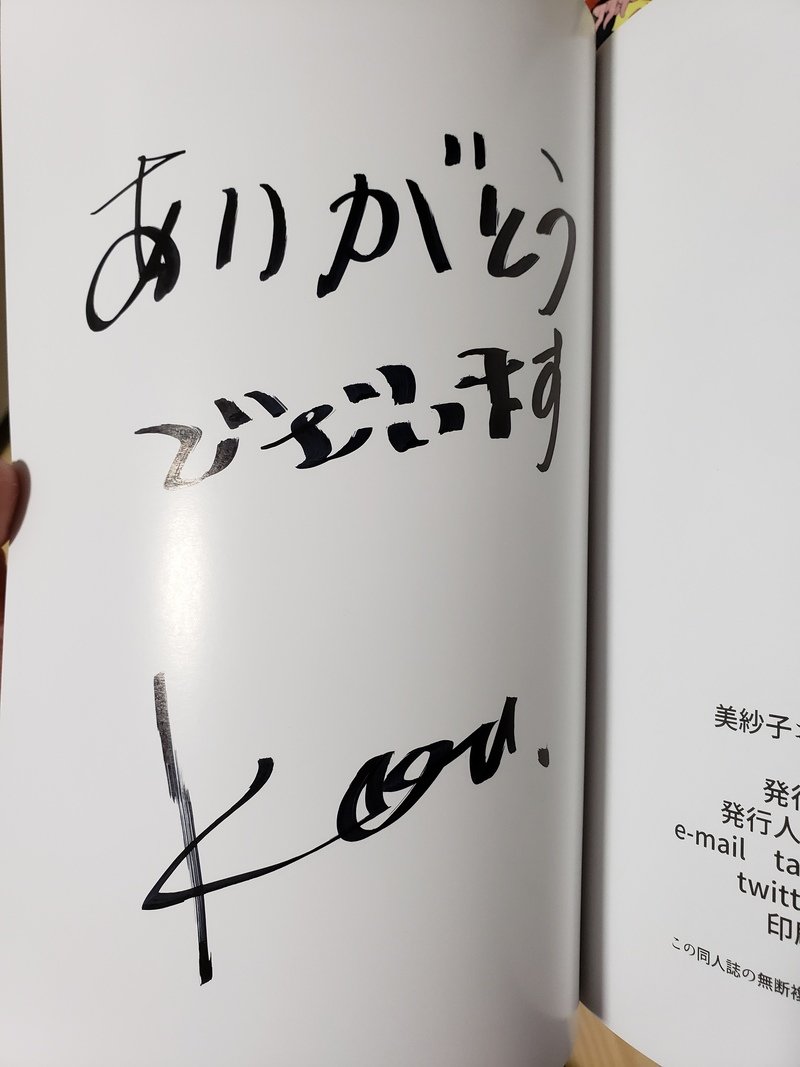 ありがとう
ございます
美紗子
発行
発行人
e-mail ta
twitt
印刷
この同人誌の無断複